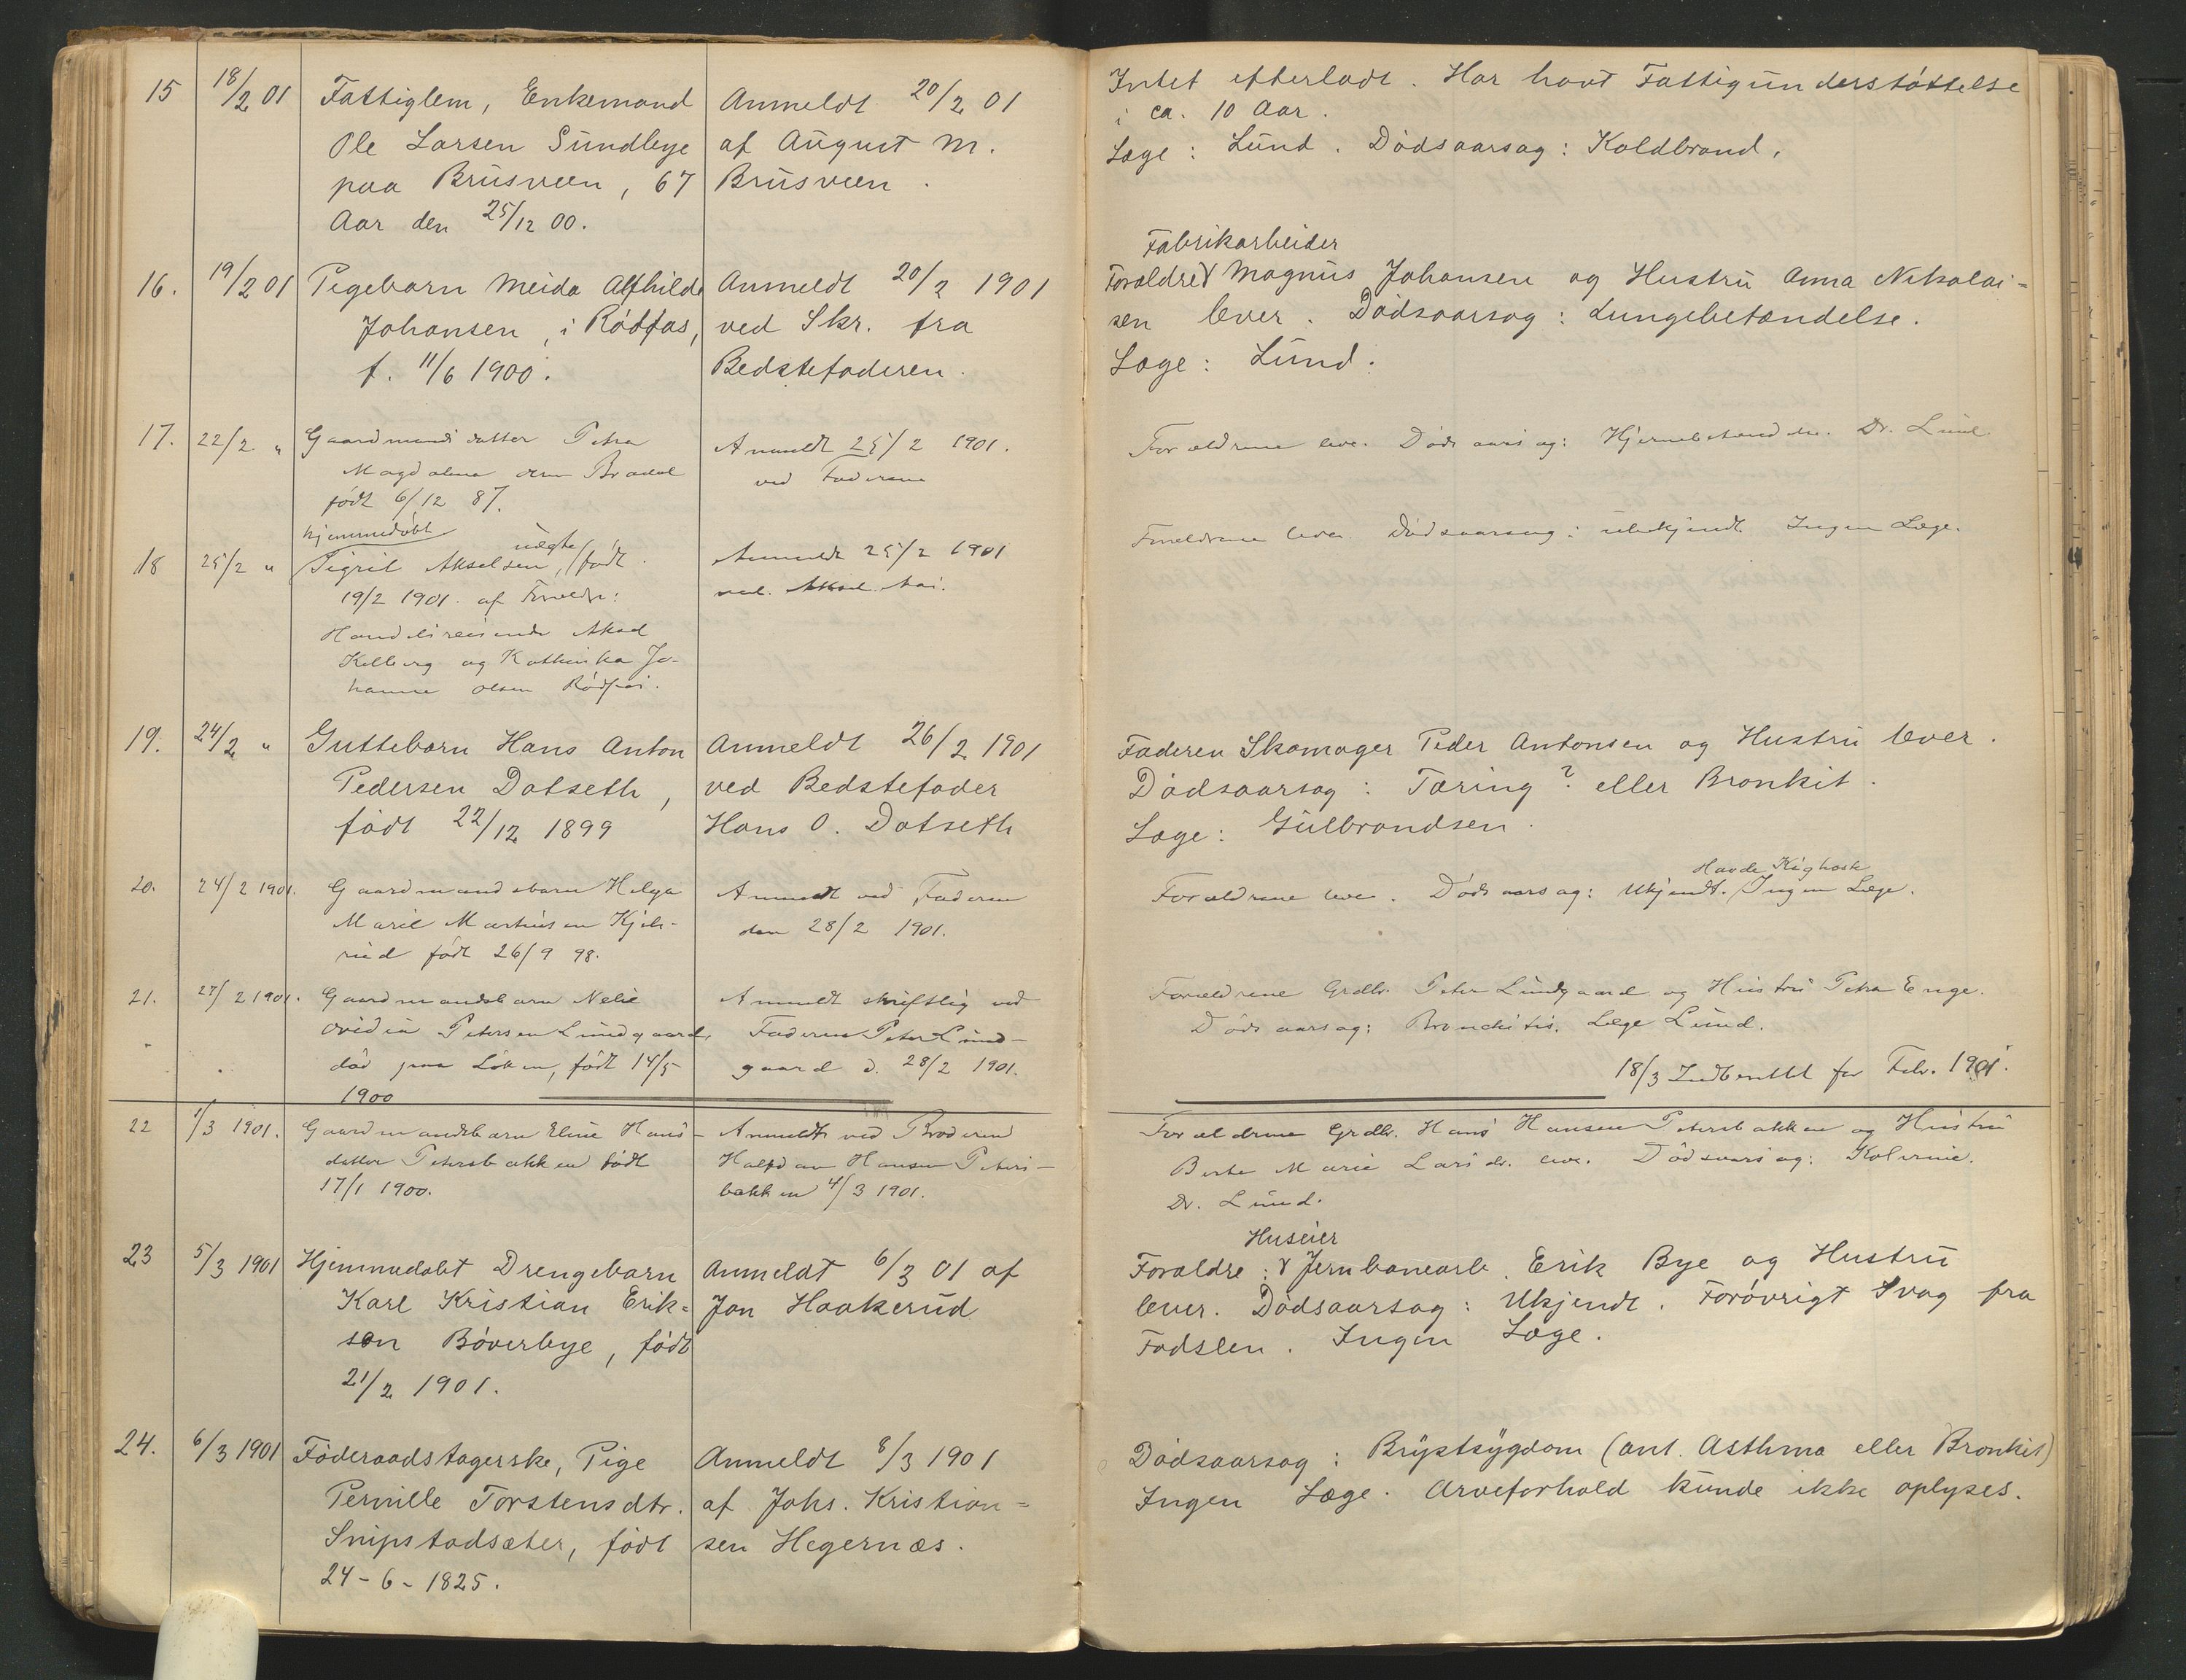 15 18/2 01 Fattiglem, Enkemand Anmeldt 20/2 01 Intet efterladt. Har havt Fattigunderstøttelse
Ole Larsen Sundbye af August M. i ca. 10 Aar.
paa Brusveen, 67 Brusveen. Læge: Lund. Dødsaarsag: Koldbrand.
Aar den 25/12 00.
Fabrikarbeider
16. 19/2 01 Pigebarn Meida Alfhilde Anmeldt 20/2 1901 Forældre Magnus Johansen og Hustru Anna Nikolai-
Johansen, i Rødfos, ved Skr. fra sen lever. Dødsaarsag: Lungebetændelse.
f. 11/6 1900. Bedstefaderen. Læge: Lund.
17. 22/2 " Gaardmandsdatter Petra Anmeldt 25/2 1901. Forældrene leve. Dødsaarsag: Hjernebetændelse. Dr. Lund
Magdalena ved Faderen
født 6/12 87.
hjemmedøbt
uægte
18 25/2 " Sigrid Akselsen, født Anmeldt 25/2 1901 Forældrene lever. Dødsaarsag: ubekjendt. Ingen Læge.
19/2 1901. af Forældre: ved
Handelsreisende Aksel
Kelberg og Kathinka Jo-
hanne Olsen Rødfos.
19. 24/2 " Guttebarn Hans Anton Anmeldt 26/2 1901 Faderen Skomager Peder Antonsen og Hustru lever.
Pedersen Dotseth, ved Bedstefader Dødsaarsag: Tæring? eller Bronkit.
født 22/12 1899 Hans O. Dotseth Læge: Gulbrandsen.
Havde Kighoste
20. 24/2 1901. Gaardmandsbarn Helga Anmeldt ved Faderen Forældrene leve. Dødsaarsag: Ukjendt. Ingen Læge.
Marie Martinsen Kjels- den 28/2 1901.
rud født 26/9 98.
21. 27/2 1901. Gaardmandsbarn Nelie Anmeldt skriftlig ved Forældrene Grdbr. Peter Lundgaard og Hustru Petra Enge.
Ovidia Petersen Lundgaard, Faderen Peter Lund- Dødsaarsag: Bronchitis. Læge Lund.
død paa Løken, født 14/5 gaard d. 28/2 1901. 18/3 Indberettet for Febr. 1901.
1900
22 1/3 1901. Gaardmandsbarn Eline Hans- Anmeldt ved Broderen Forældrene Grdbr. Hans Hansen Petersbakken og Hustru
datter Petersbakken født Halfdan Hansen Peters- Berte Marie Larsdr. leve. Dødsaarsag: Kolerine.
17/1 1900. bakken 4/3 1901. Dr. Lund.
Huseier
23 5/3 1901 Hjemmedøbt Drengebarn Anmeldt 6/3 01 af Forældre: Jernbanearb. Erik Bye og Hustru
Karl Kristian Erik- Jon Haakerud lever. Dødsaarsag: Ukjendt. Forøvrigt svag fra
sen Bøverbye, født Fødslen. Ingen Læge.
21/2 1901.
24. 6/3 1901 Føderaadstagerske, Pige Anmeldt 8/3 1901 Dødsaarsag: Brystsygdom (ant. Asthma eller Bronkit)
Pernille Torstensdtr. af Johs. Kristian- Ingen Læge. Arveforhold kunde ikke oplyses.
Snipstadsæter, født sen Hegernæs.
24-6-1825.